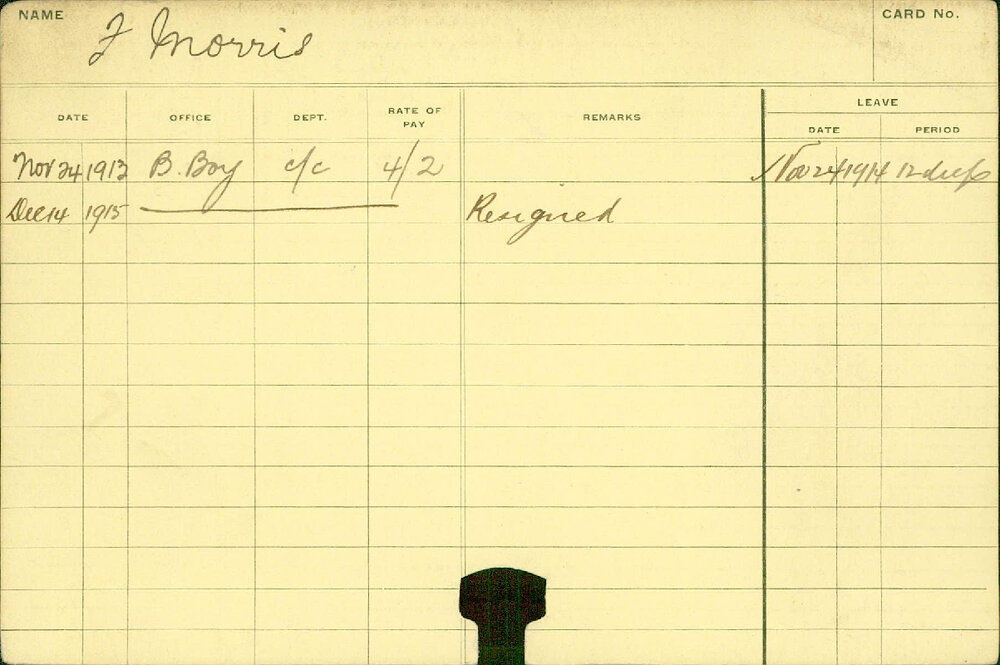 NAME
CARD No.
F Morris
LEAVE
DATE OFFICE DEPT. RATE OF PAY REMARKS DATE PERIOD
Nov 24 1913 B. Boy c/c 4/2 Nov 24 1914 12 days
Dec 14 1915 Resigned